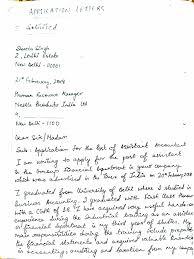 APPLICATION LETTERS
= Solicited
Shweta Singh
2, Lodhi Estate
New Delhi - 110001
21st February, 2008
Human Resource Manager
Nestle Products India Ltd
9,
New Delhi - 1100
Dear Sir/Madam
Sub: Application for the Post of Assistant Accountant
I am writing to apply for the post of assistant
in the Group's Financial Department in your company
which was advertised in the Times of India on 20th February 2008
I graduated from University of Delhi where I studied
Business Accounting. I graduated with First Class Honours
with a CGPA of 3.8. I have acquired very useful hands-on
experience during the industrial training as an assistant
of financial department in my third year of study. My
main responsibilities during the training include preparing
the financial statements and acquired valuable knowledge
in accounting, auditing and taxation from my